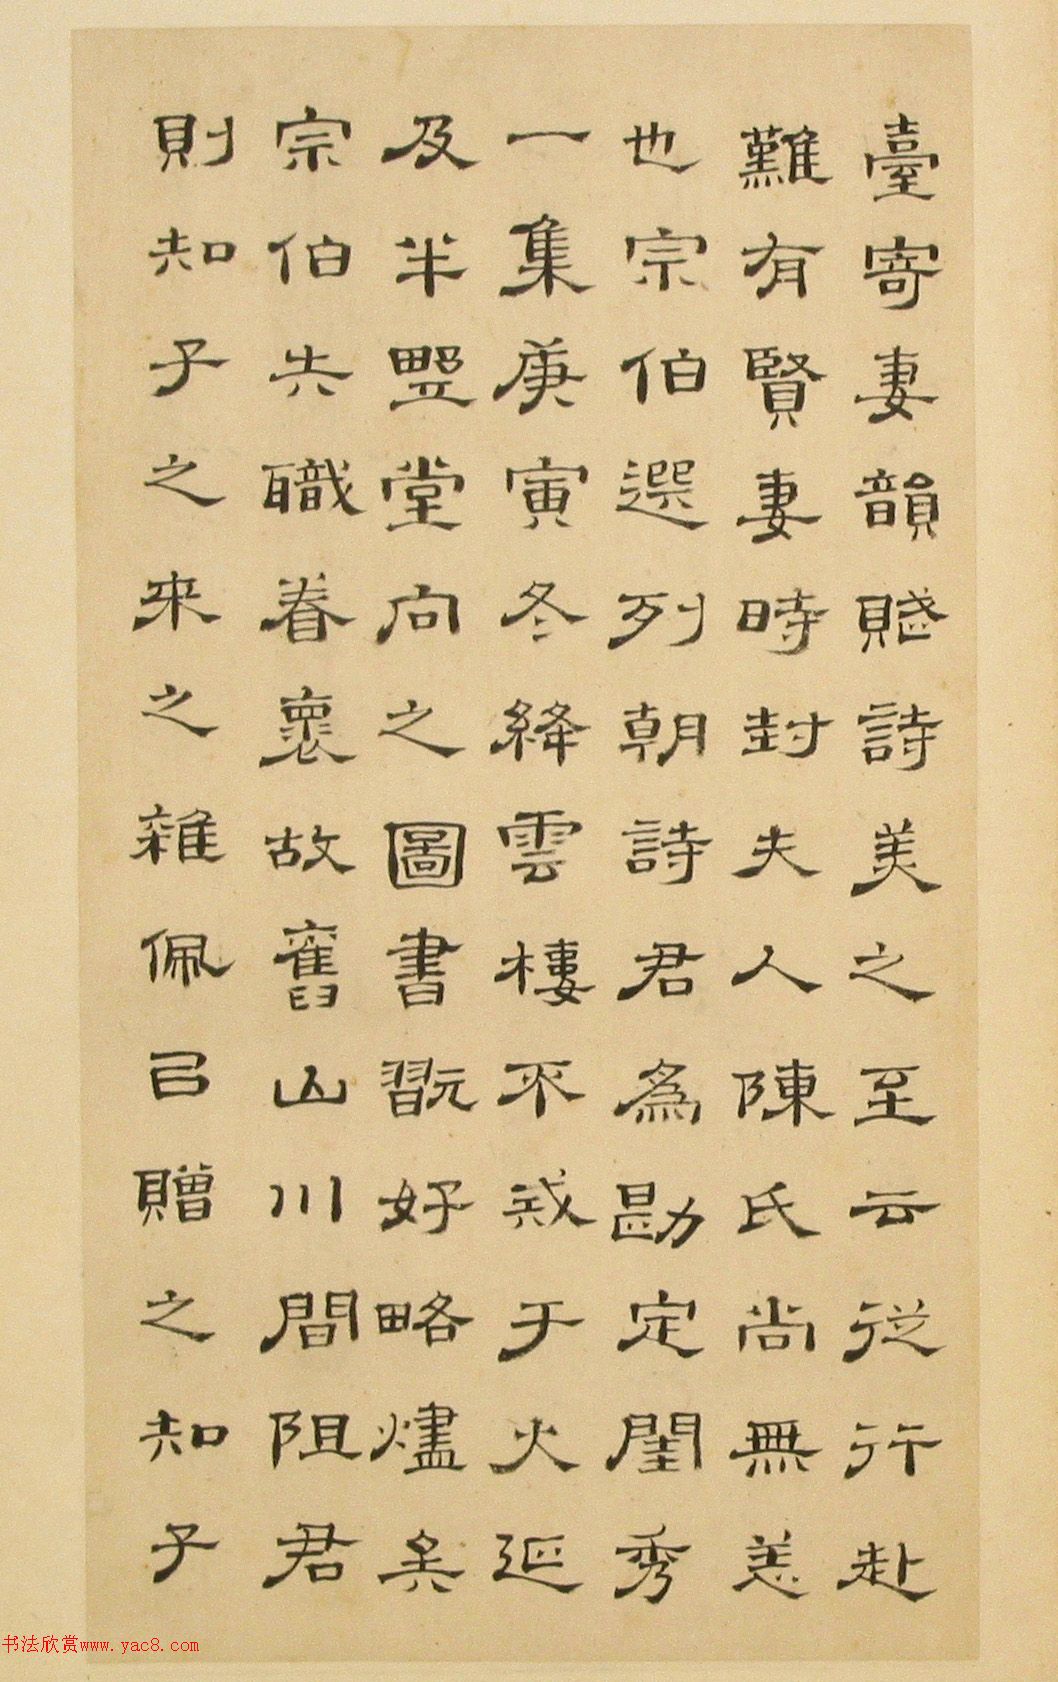 臺寄妻韻賦詩美之至云從行赴
難有賢妻時封夫人陳氏尚無恙
也宗伯選列朝詩君為勘定閨秀
一集庚寅冬絳雲樓不戒于火延
及半野堂向之圖書翫好略燼矣
宗伯失職眷褱故舊山川間阻君
則知子之來之雜佩㠯贈之知子
书法欣赏www.yac8.com